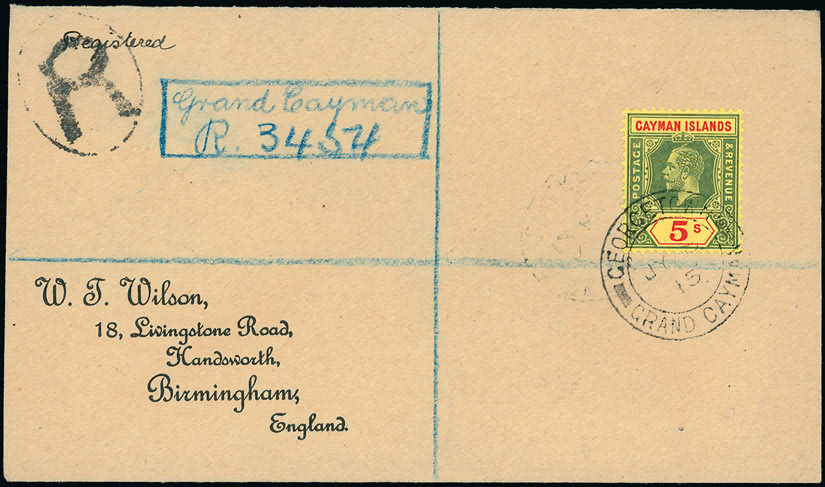 Registered
R
Grand Cayman
R. 3454
CAYMAN ISLANDS
POSTAGE
& REVENUE
5s
GEORGETOWN
JY
15
GRAND CAYMAN
W. T. Wilson,
18, Livingstone Road,
Handsworth,
Birmingham,
England.